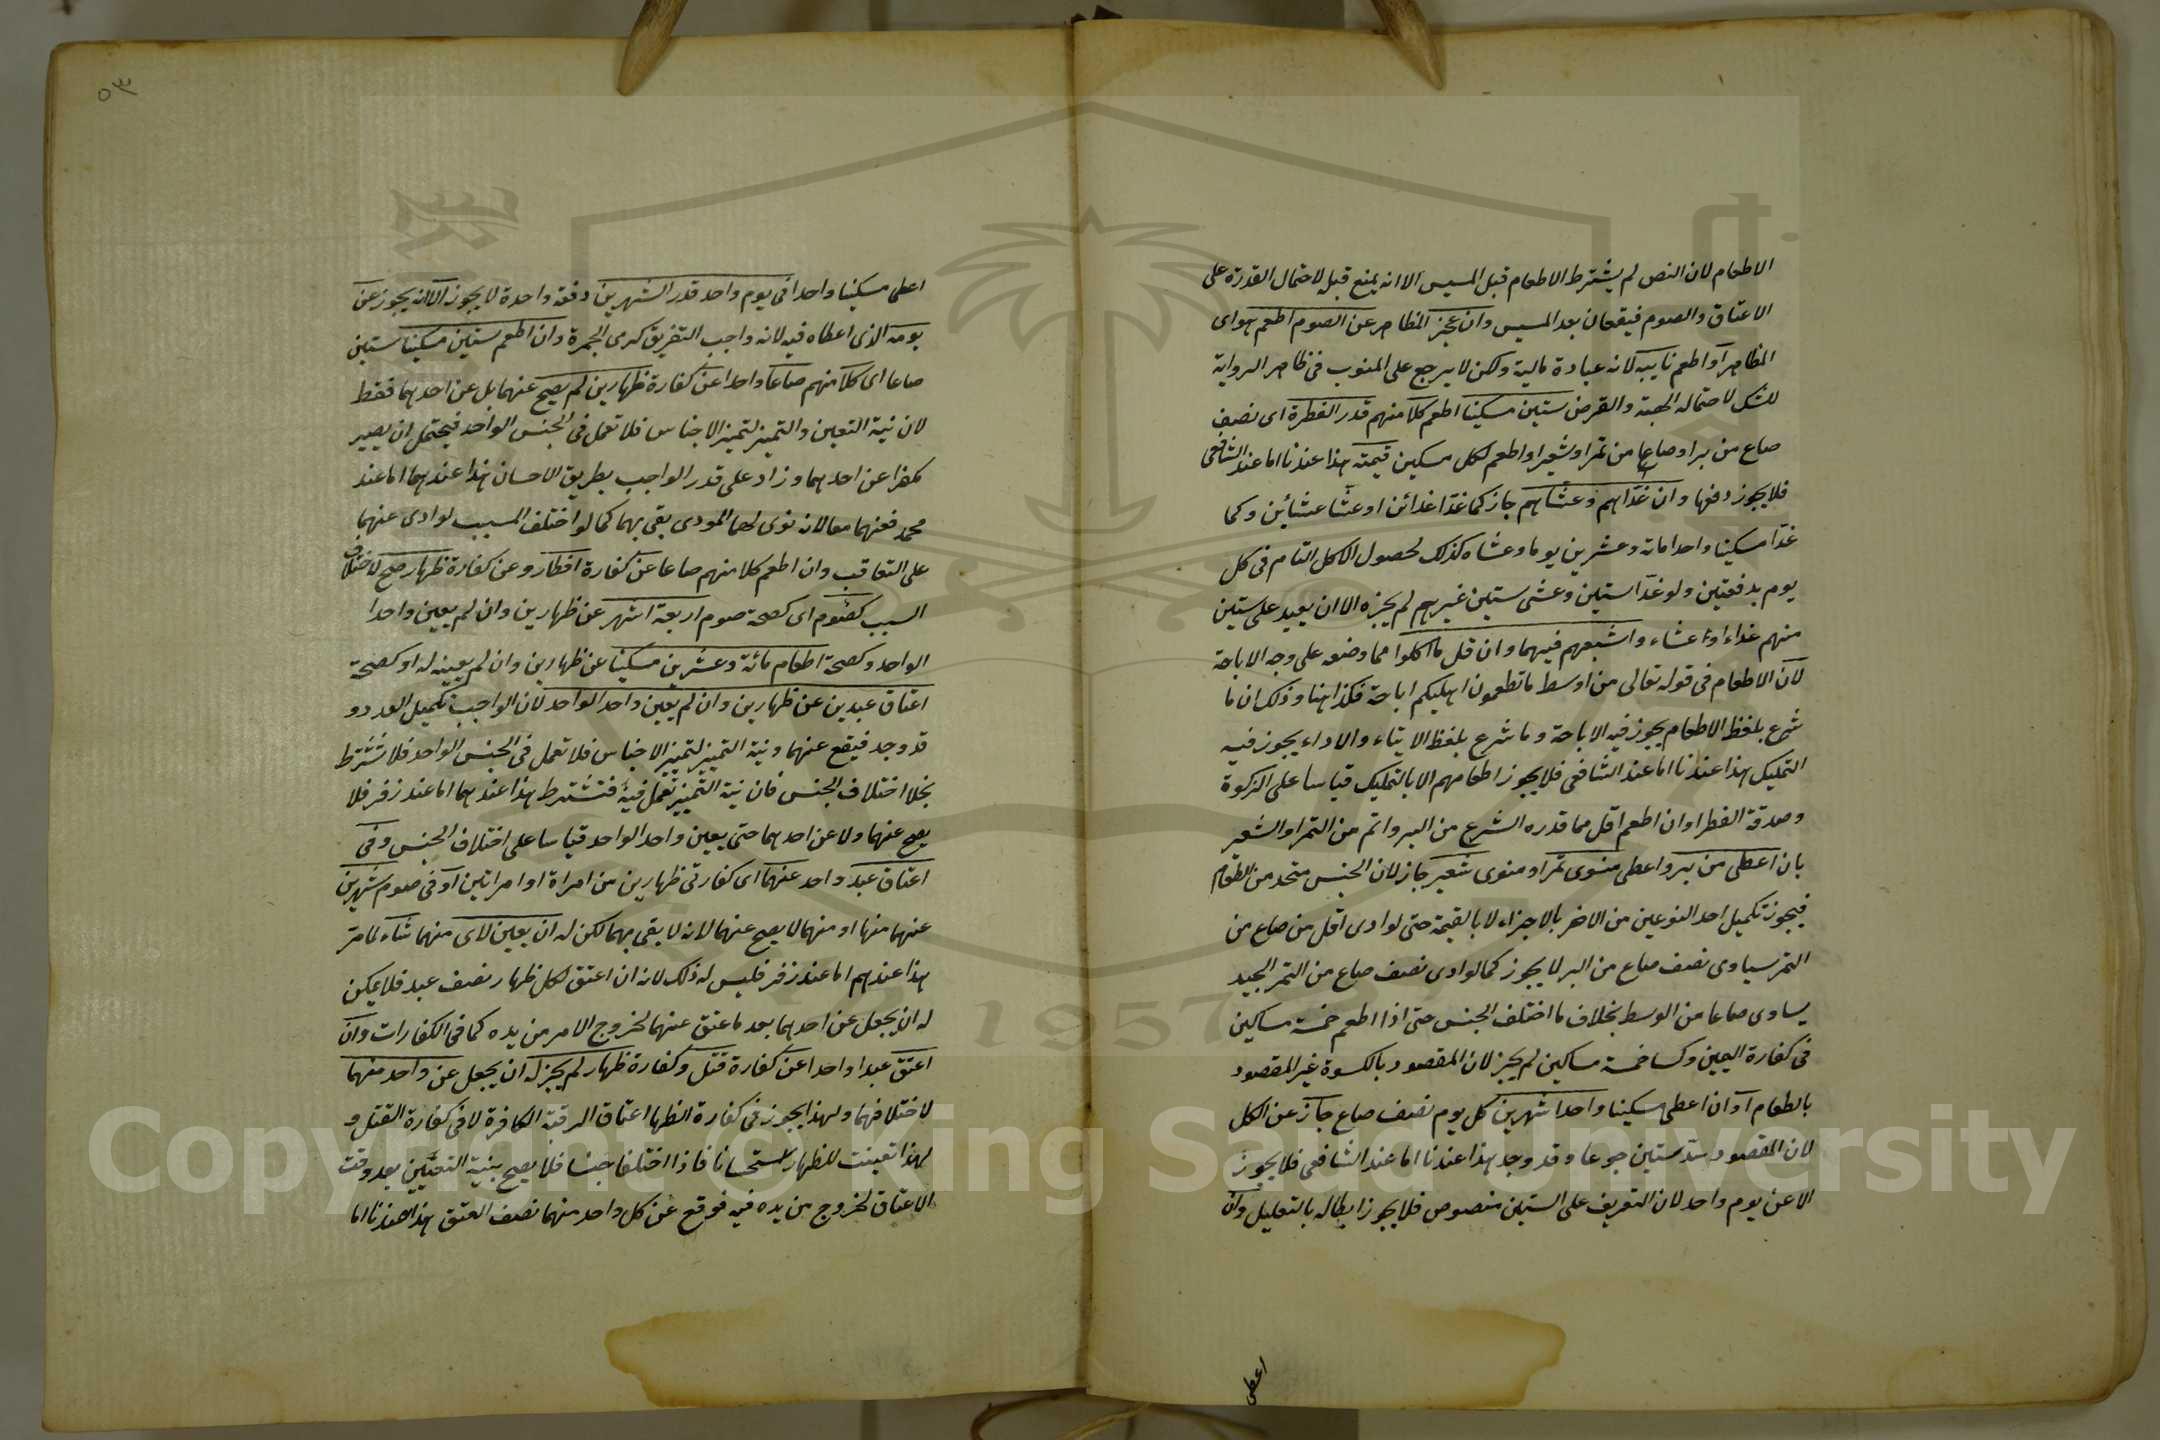 الاطعام لان النص لم يشترط الاطعام قبل المسيس الا انه يمنع قبله لاحتمال القدرة على
الاعتاق والصوم فيقعان بعد المسيس وان عجز المظاهر عن الصوم اطعم هو اى
المظاهر او اطعم نايبه لانه عبادة مالية ولكن لا يرجع على المنوب فى ظاهر الرواية
للشك لاحتماله الهبة والقرض ستين مسكينا اطعم كلا منهم قدر الفطرة اى نصف
صاع من بر او صاعا من تمر او شعير او اطعم لكل مسكين قيمته هذا عندنا اما عند الشافعى
فلا يجوز دفعها وان غدّاهم وعشّاهم جاز كما غدّا غدائن او عشّا عشائن وكما
غدّا مسكينا واحدا مائة وعشرين يوما وعشاه كذلك لحصول الاكل التام فى كل
يوم بدفعتين ولو غدّا ستين وعشى ستين غيرهم لم يجزه الا ان يعيد على ستين
منهم غداء او عشاء واشبعهم فيهما وان قل ما اكلوا مما وضعه على وجه الاباحة
لان الاطعام فى قوله تعالى من اوسط ما تطعمون اهليكم اباحة فكذا هنا وذلك ان ما
شرع بلفظ الاطعام يجوز فيه الاباحة وما شرع بلفظ الايتاء والاداء يجوز فيه
التمليك هذا عندنا اما عند الشافعى فلا يجوز اطعامهم الا بالتمليك قياسا على الزكوة
وصدقة الفطر او ان اطعم اقل مما قدره الشرع من البر واتم من التمر او الشعير
بان اعطى من بر واعطى منوى تمر او منوى شعير جاز لان الجنس متحد من الطعام
فيجوز تكميل احد النوعين من الاخر بالاجزاء لا بالقيمة حتى لو ادى اقل من صاع من
التمر يساوى نصف صاع من البر لا يجوز كما لو ادى نصف صاع من التمر الجيد
يساوى صاعا من الوسط بخلاف ما اختلف الجنس حتى اذا اطعم خمسة مساكين
فى كفارة اليمين وكسا خمسة مساكين لم يجز لان المقصود بالكسوة غير المقصود
بالطعام او ان اعطى مسكينا واحدا شهرين كل يوم نصف صاع جاز عن الكل
لان المقصود سد ستين جوعا وقد وجد هذا عندنا اما عند الشافعى فلا يجوز
الا عن يوم واحد لان التعريف على الستين منصوص فلا يجوز ابطاله بالتعليل وان
اعطى
٥٣
اعطى مسكينا واحدا فى يوم واحد قدر الشهرين دفعة واحدة لا يجوز الا انه يجوز عن
يومه الذى اعطاه فيه لانه واجب التفريق كرمى الجمرة وان اطعم ستين مسكينا ستين
صاعا اى كلا منهم صاعا واحدا عن كفارة ظهارين لم يصح عنهما بل عن احدهما فقط
لان نية التعين والتميز لتميز الاجناس فلا تعمل فى الجنس الواحد فيحتمل ان يصير
مكفرا عن احدهما وزاد على قدر الواجب بطريق الاحسان هذا عندهما اما عند
محمد فعنهما معا لانه نوى لهما المودى بقى بهما كما لو اختلف السبب لو ادى عنهما
على التعاقب وان اطعم كلا منهم صاعا عن كفارة افطار وعن كفارة ظهار صح لاختلاف
السبب كصوم اى كصحة صوم اربعة اشهر عن ظهارين وان لم يعين واحدا
الواحد وكصحة اطعام مائة وعشرين مسكينا عن ظهارين وان لم يعينه له او كصحة
اعتاق عبدين عن ظهارين وان لم يعين واحد الواحد لان الواجب تكميل العدد و
قد وجد فيقع عنهما ونية التميز لتميز الاجناس فلا تعمل فى الجنس الواحد فلا تشترط
بخلا اختلاف الجنس فان نية التميز تعمل فيه فتشترط هذا عندهما اما عند زفر فلا
يصح عنهما ولا عن احدهما حتى يعين واحد الواحد قياسا على اختلاف الجنس وفى
اعتاق عبد واحد عنهما اى كفارتى ظهارين من امراة او امراتين او فى صوم شهرين
عنهما منها او منهما لا يصح عنهما لانه لا يقى بهما لكن له ان يعين لاى منهما شاء لما مر
هذا عندهم اما عند زفر فليس له ذلك لانه ان اعتق لكل ظهار نصف عبد فلا يمكن
له ان يجعل عن احدهما بعد ما عتق عنهما لخروج الامر من يده كما فى الكفارات وان
اعتق عبدا واحدا عن كفارة قتل وكفارة ظهار لم يجز له ان يجعل عن واحد منهما
لاختلافهما ولهذا يجوز فى كفارة الظهار اعتاق الرقبة الكافرة لا فى كفارة القتل و
لهذا تعينت للظهار استحسانا فاذا اختلفا جنسا فلا يصح بنية التعيين بعد وقت
الاعتاق لخروج من يده فيه فوقع عن كل واحد منهما نصف العتق هذا عندنا اما
Copyright © King Saud University
1957